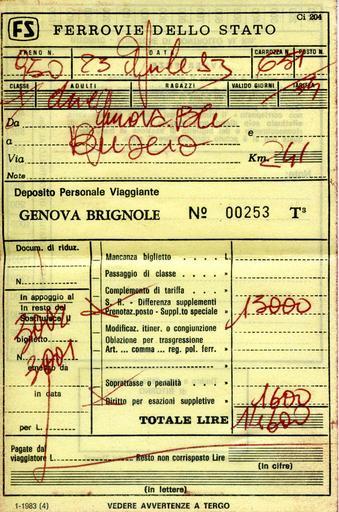 Ci 204
FS FERROVIE DELLO STATO
TRENO N. DATA CARROZZA N. POSTO N.
950 23 Aprile 83
CLASSE ADULTI RAGAZZI VALIDO GIORNI
due
Da Genova P.Pe
a e
Via Km. 241
Note
Deposito Personale Viaggiante
GENOVA BRIGNOLE Nº 00253 Tª
Docum. di riduz.
N.
In appoggio al
In resto del
Sostituisce il
biglietto
N.
emesso da
in data
per L.
3002
3001
Mancanza biglietto . . . . L.
Passaggio di classe . . . . »
Complemento di tariffa . . »
S. R. - Differenza supplementi
Prenotaz.posto - Suppl.to speciale » 13000
Modificaz. itiner. o congiunzione
Oblazione per trasgressione
Art. ... comma ... reg. pol. ferr. »
Soprattasse o penalità . . . »
Diritto per esazioni suppletive » 1600
TOTALE LIRE 14600
Pagate dal
viaggiatore L. Resto non corrisposto Lire
(in cifre)
(in lettere)
1-1983 (4) VEDERE AVVERTENZE A TERGO